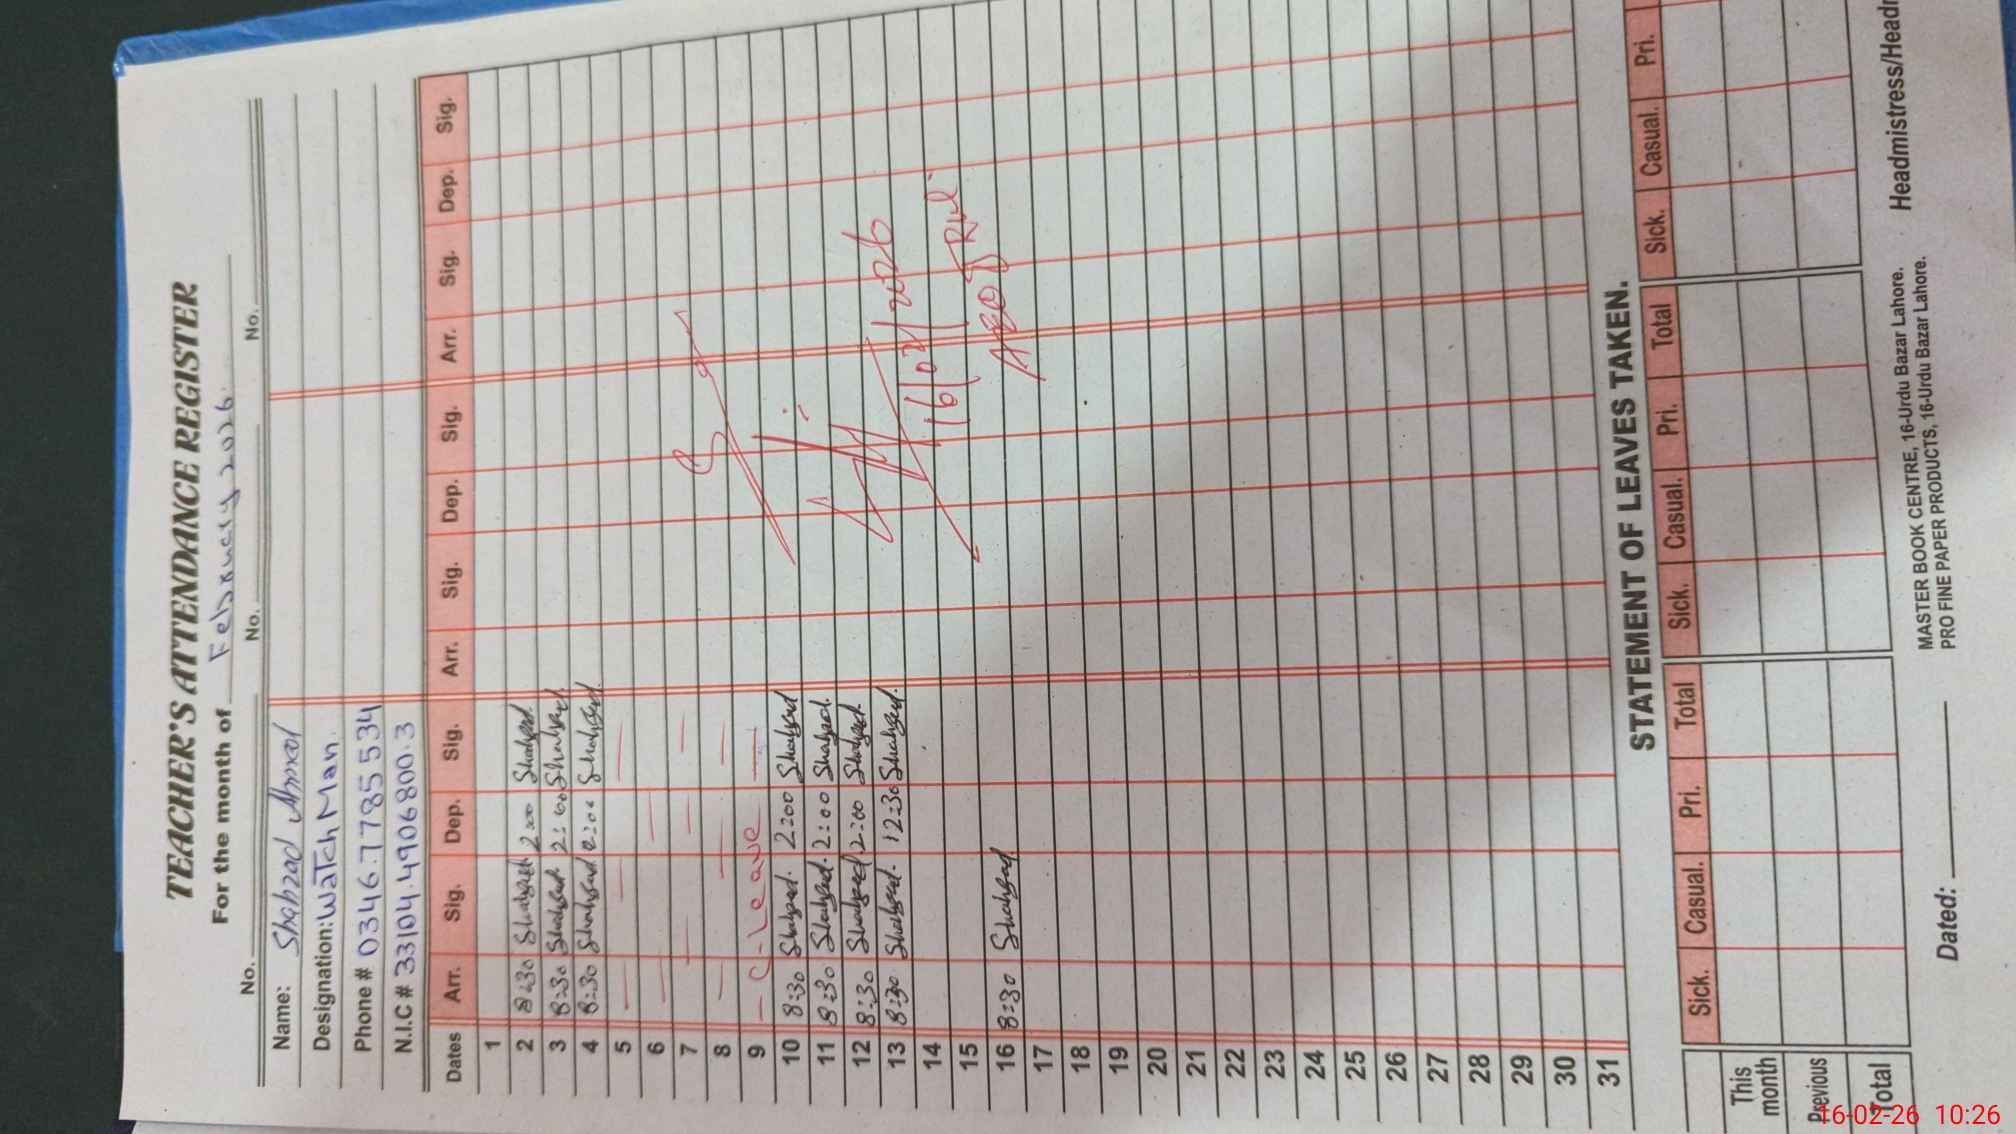 TEACHER'S ATTENDANCE REGISTER
For the month of February 2026.
No. No. No.
Name: Shahzad Ahmad
Designation: WaTch Man.
Phone # 0346.7785534
N.I.C # 33104.4906800.3
Dates Arr. Sig. Dep. Sig. Arr. Sig. Dep. Sig. Arr. Sig. Dep. Sig.
1
2 8:30 Shahzad 2:00 Shahzad
3 8:30 Shahzad 2:00 Shahzad
4 8:30 Shahzad 2:00 Shahzad
5 — — —
6 — —
7 — — —
8 — — —
9 — C-Leave —
10 8:30 Shahzad. 2:00 Shahzad
11 8:30 Shahzad. 2:00 Shahzad
12 8:30 Shahzad 2:00 Shahzad
13 8:30 Shahzad. 12:30 Shahzad.
14
15
16 8:30 Shahzad
17
18
19
20
21
22
23
24
25
26
27
28
29
30
31
16/02/2026
STATEMENT OF LEAVES TAKEN.
Sick. Casual. Pri. Total Sick. Casual. Pri. Total Sick. Casual. Pri.
This month
Previous
Total
MASTER BOOK CENTRE, 16-Urdu Bazar Lahore.
PRO FINE PAPER PRODUCTS, 16-Urdu Bazar Lahore.
Dated:
Headmistress/Headm
16-02-26 10:26